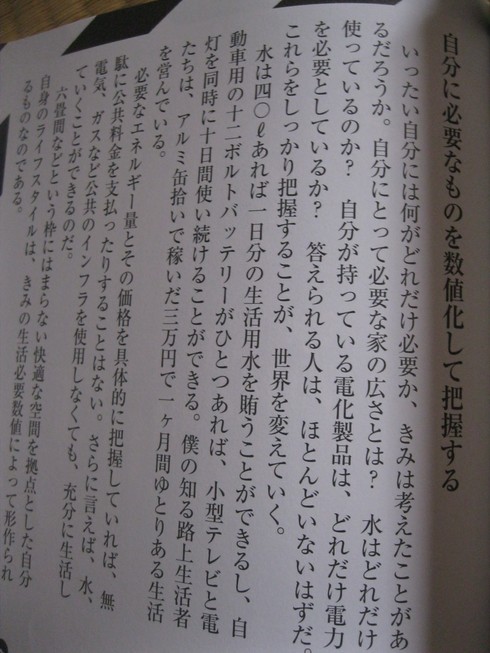 自分に必要なものを数値化して把握する
いったい自分には何がどれだけ必要か、きみは考えたことがあ
るだろうか。自分にとって必要な家の広さとは？　水はどれだけ
使っているのか？　自分が持っている電化製品は、どれだけ電力
を必要としているか？　答えられる人は、ほとんどいないはずだ。
これらをしっかり把握することが、世界を変えていく。
水は四〇ℓあれば一日分の生活用水を賄うことができるし、自
動車用の十二ボルトバッテリーがひとつあれば、小型テレビと電
灯を同時に十日間使い続けることができる。僕の知る路上生活者
たちは、アルミ缶拾いで稼いだ三万円で一ヶ月間ゆとりある生活
を営んでいる。
必要なエネルギー量とその価格を具体的に把握していれば、無
駄に公共料金を支払ったりすることはない。さらに言えば、水、
電気、ガスなど公共のインフラを使用しなくても、充分に生活し
ていくことができるのだ。
六畳間などという枠にはまらない快適な空間を拠点とした自分
自身のライフスタイルは、きみの生活必要数値によって形作られ
るものなのである。